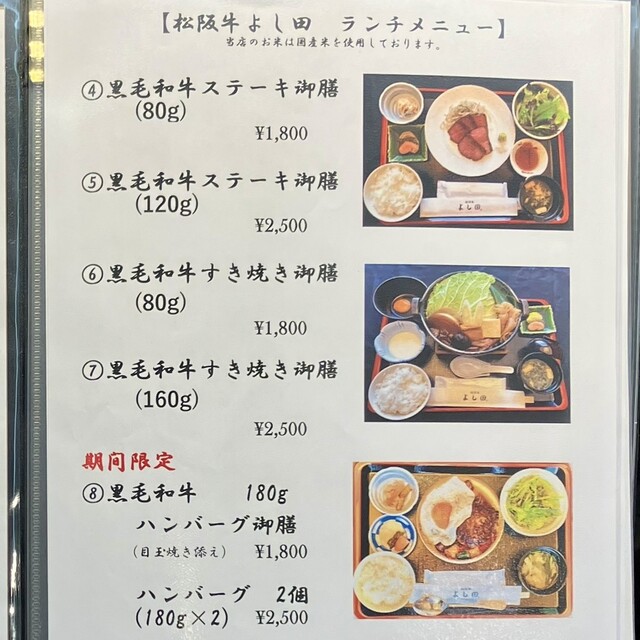 【松阪牛よし田　ランチメニュー】
当店のお米は国産米を使用しております。
④黒毛和牛ステーキ御膳
(80g)
¥1,800
⑤黒毛和牛ステーキ御膳
(120g)
¥2,500
⑥黒毛和牛すき焼き御膳
(80g)
¥1,800
⑦黒毛和牛すき焼き御膳
(160g)
¥2,500
期間限定
⑧黒毛和牛　180g
ハンバーグ御膳
(目玉焼き添え)　¥1,800
ハンバーグ　2個
(180g×2)　¥2,500
よし田
よし田
よし田